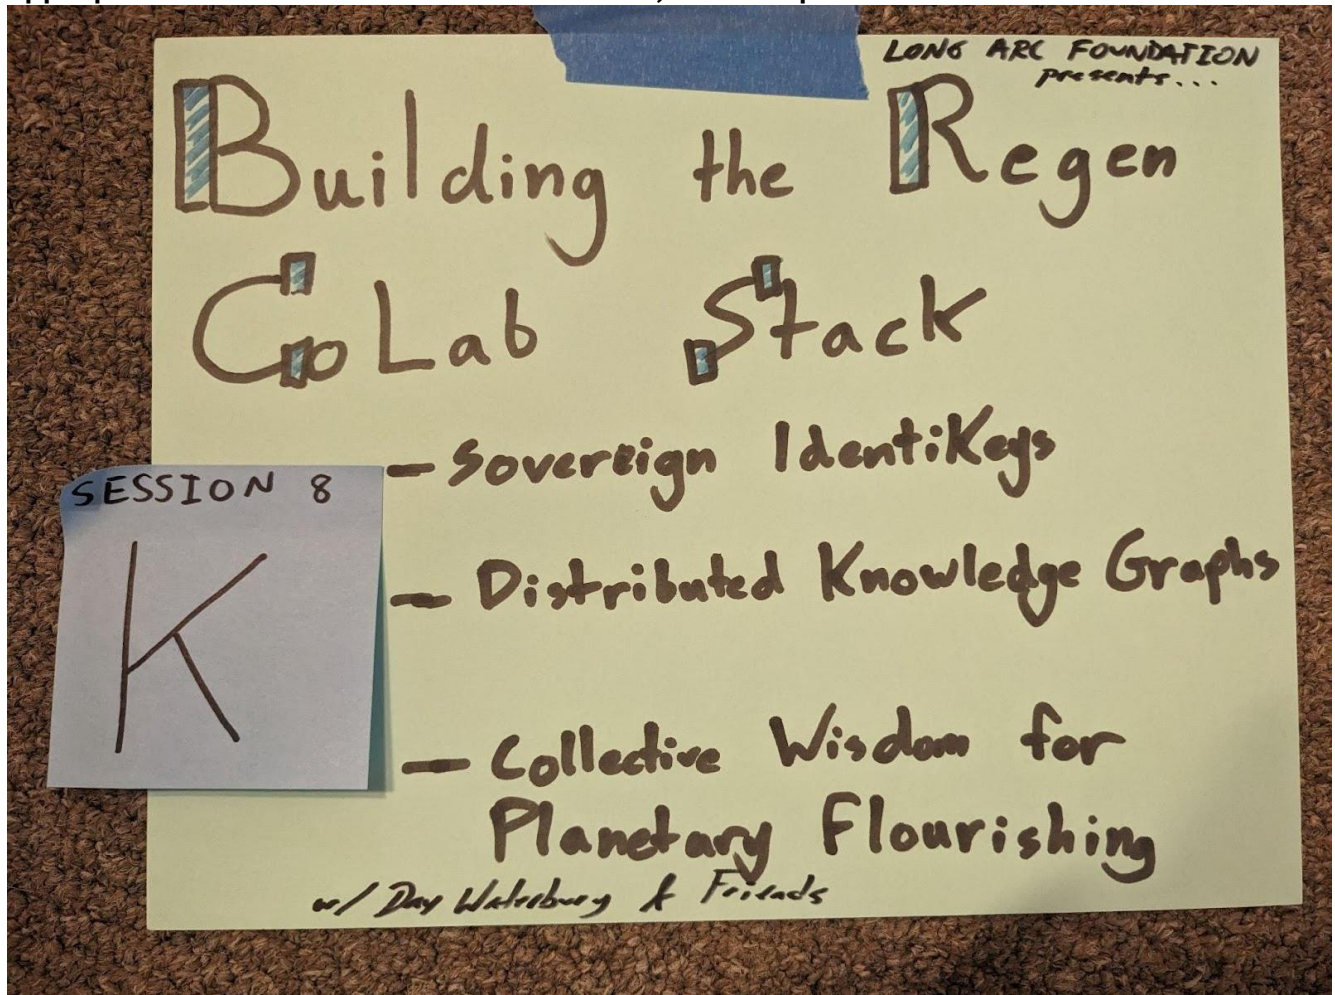 LONG ARC FOUNDATION
presents...
Building the Regen
CoLab Stack
- Sovereign IdentiKeys
- Distributed Knowledge Graphs
- Collective Wisdom for
Planetary Flourishing
w/ Day Waterbury & Friends
SESSION 8
K